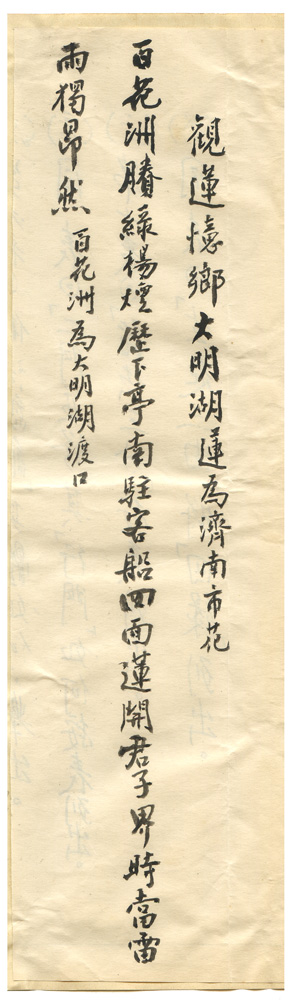 觀蓮憶鄉大明湖蓮為濟南市花
百花洲賸綠楊煙歷下亭南駐客船四面蓮開君子界時當雷
雨獨昂然百花洲為大明湖渡口